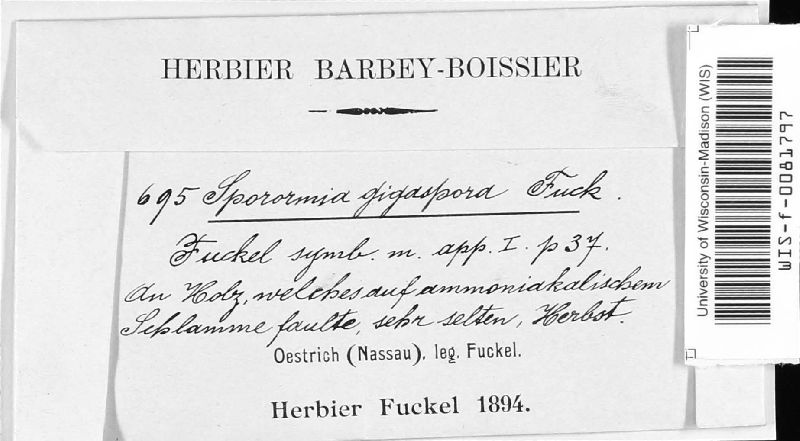 HERBIER BARBEY-BOISSIER
695 Sporormia gigaspora Fuck.
Fuckel symb. m. app. I. p 37.
An Holz, welches auf ammoniakalischem
Schlamme faulte, sehr selten, Herbst.
Oestrich (Nassau). leg. Fuckel.
Herbier Fuckel 1894.
University of Wisconsin-Madison (WIS)
WIS-f-0081797